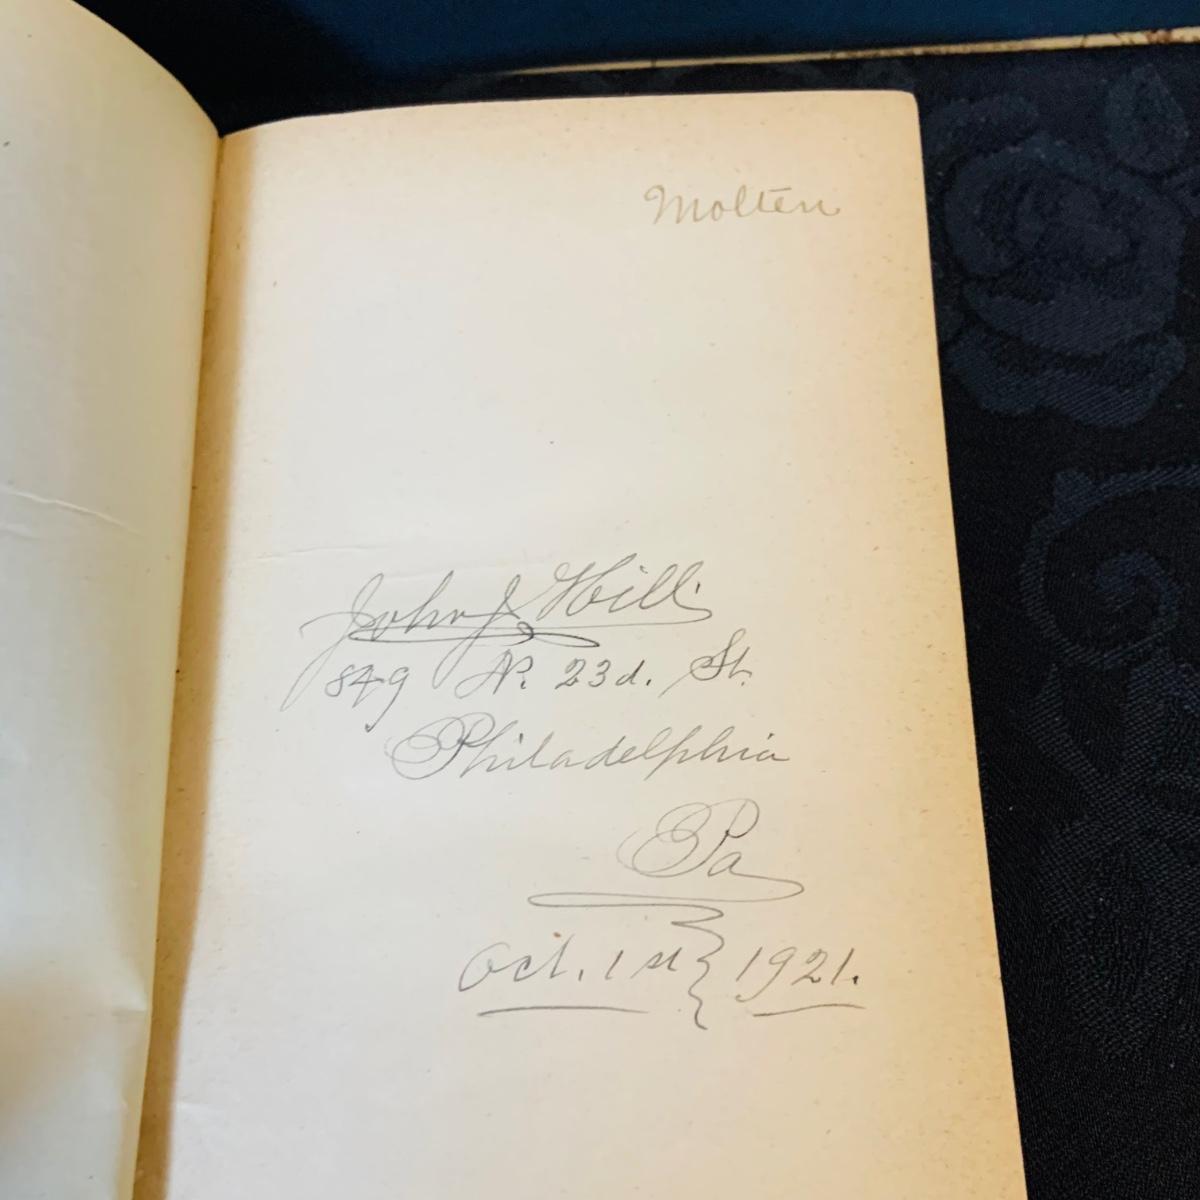 Molten
John J. Hill.
849 N. 23d. St.
Philadelphia
Pa
Oct. 1st } 1921.